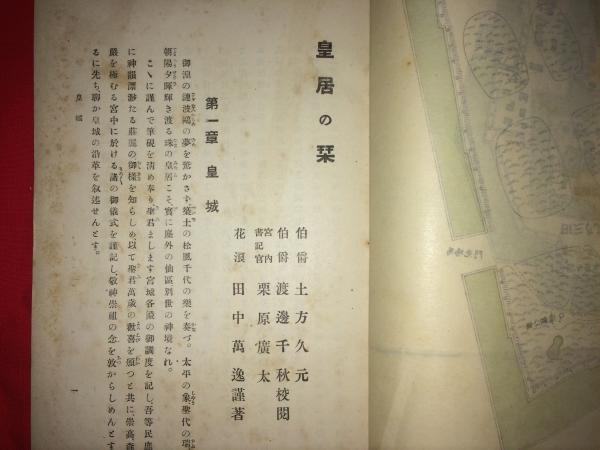 皇居の栞
伯爵 土方久元
伯爵 渡邊千秋 校閲
宮内書記官 栗原廣太
花浪 田中萬逸 謹著
第一章 皇城
御溝の漣波鴎の夢を驚かさず、築土の松風千代の樂を奏づ。太平の象、聖代の瑞
朝陽夕暉輝き渡る珠の皇居こそ、實に塵外の仙區別世の神境なれ。
こゝに謹んで筆硯を清め奉り、聖君まします宮城各殿の御調度を記し、吾等民
に神韻漂渺たる莊麗の御樣を知らしめ、以て聖君萬歳の歡喜を頒つと共に、崇高森
嚴を極むる宮中に於ける諸の御儀式を謹記し、敬神崇祖の念を敦からしめんとす
るに先ち、聊か皇城の沿革を叙述せんとす。
皇城
一